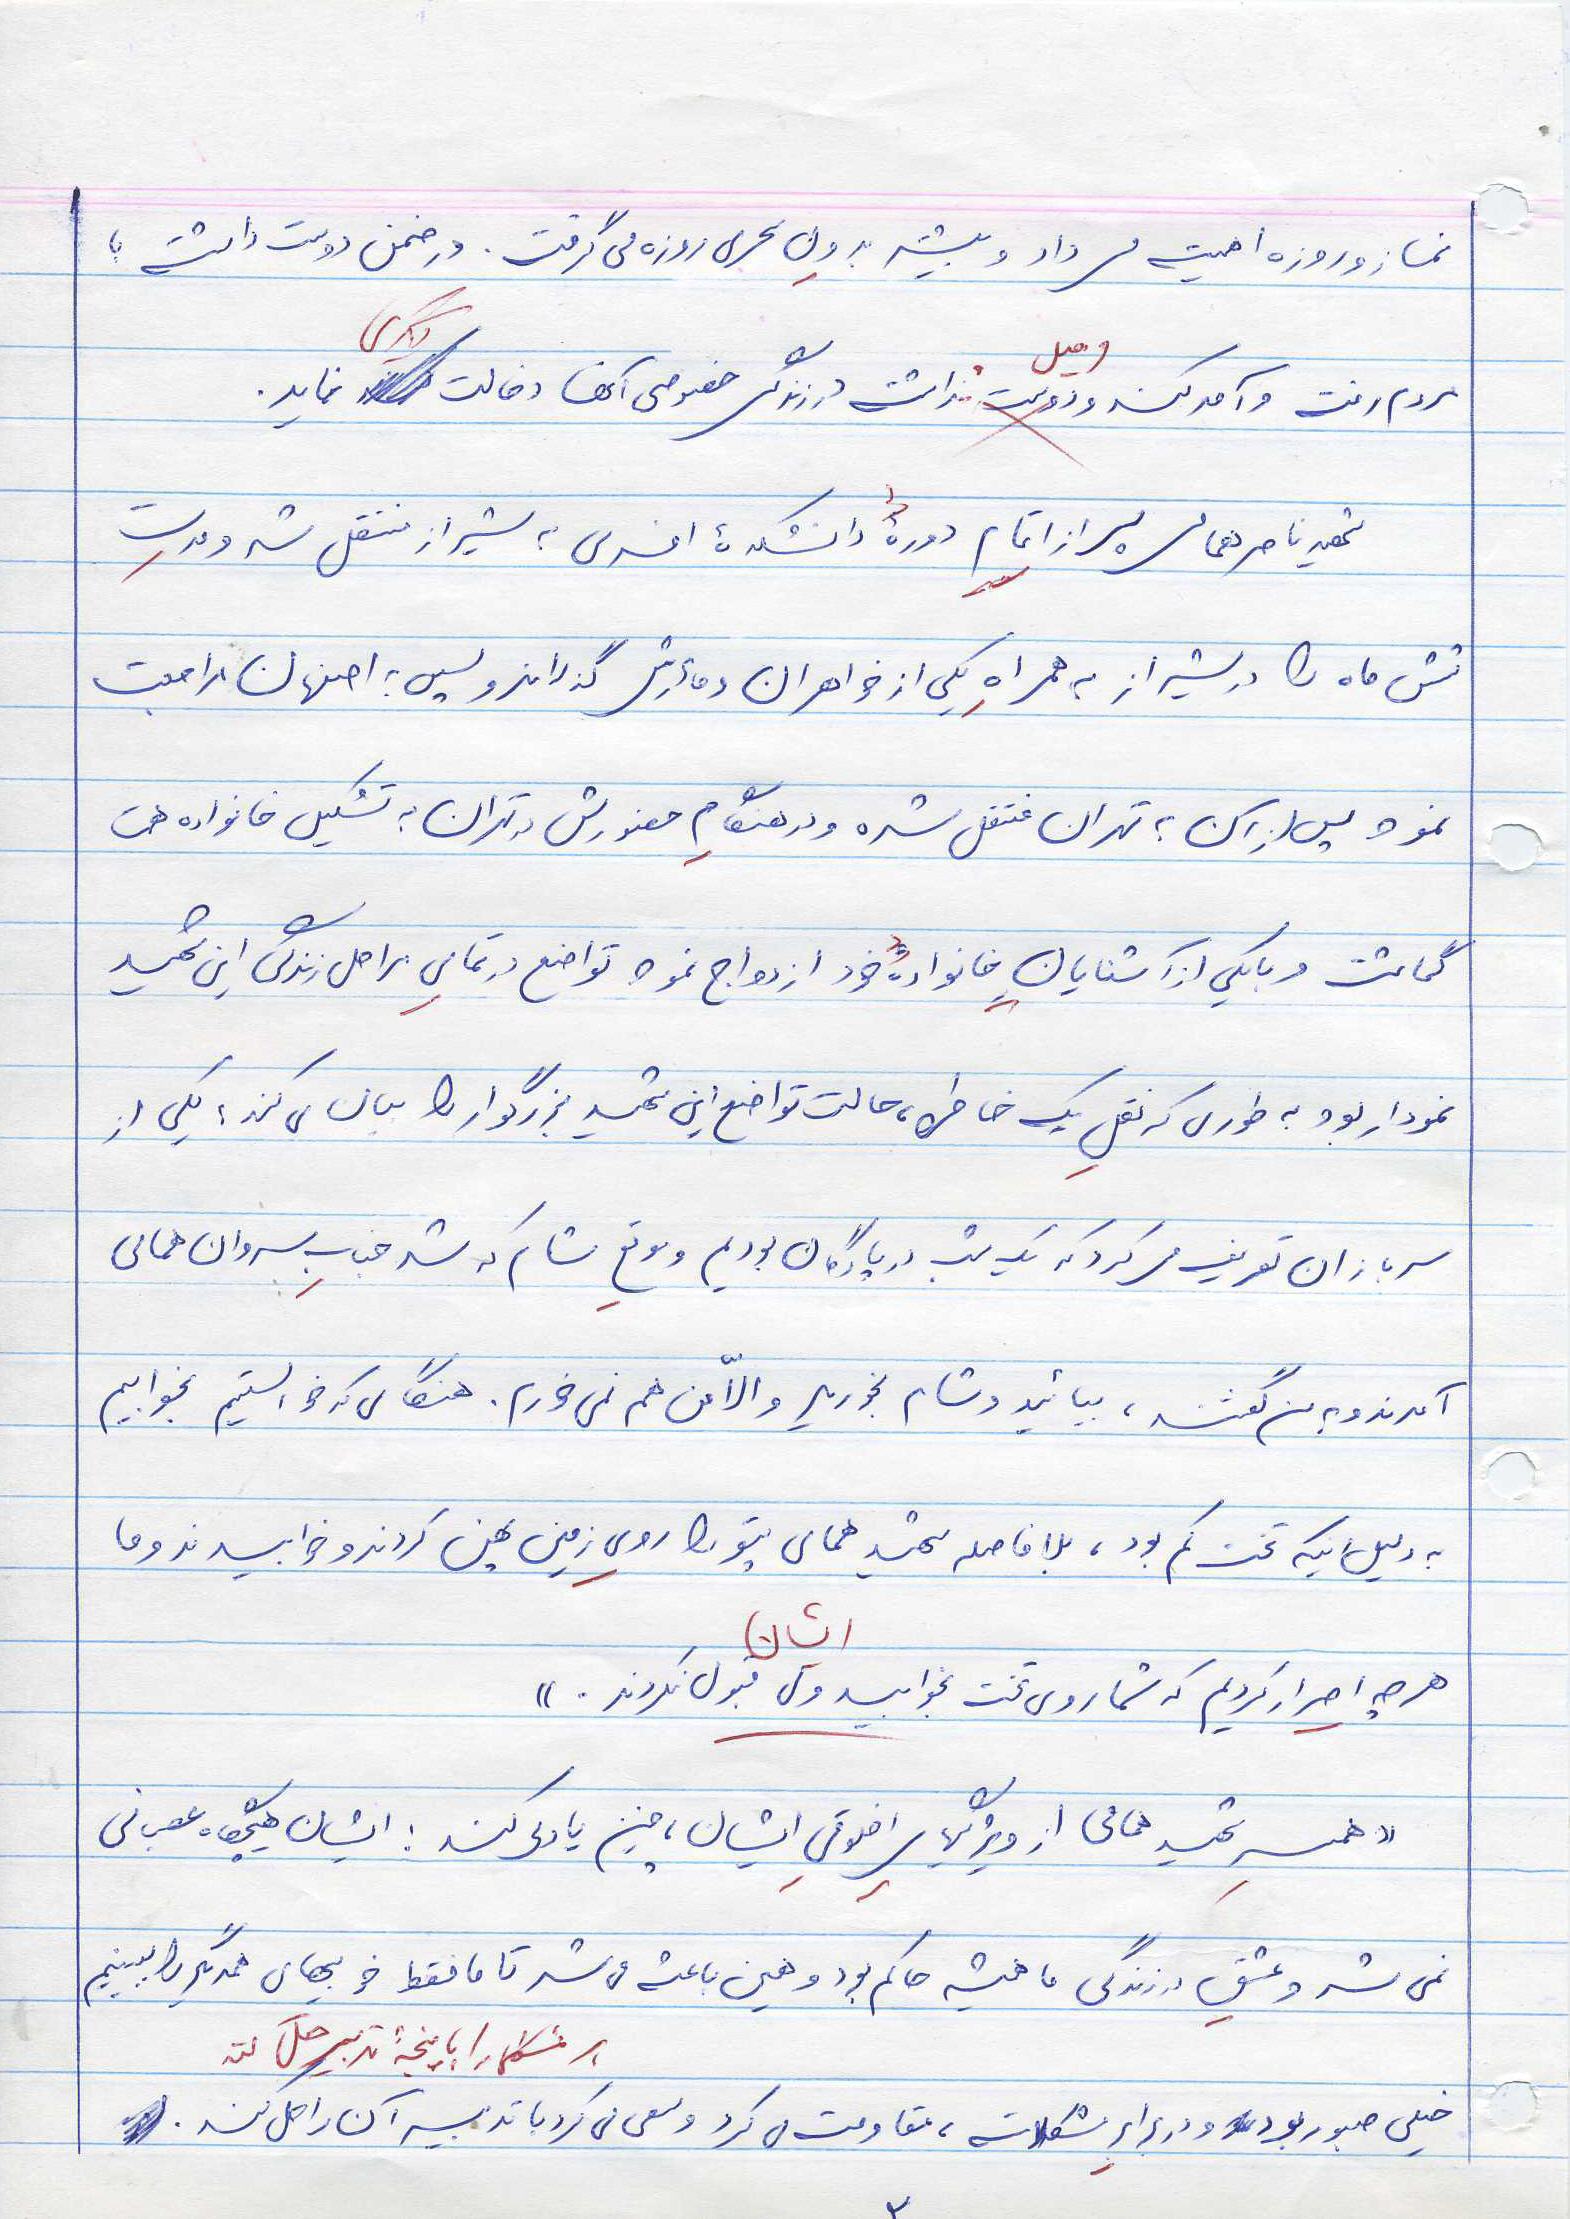 نماز و روزه اهمیت می داد و بیشتر بدون سحری روزه می گرفت. در ضمن دوست داشت با
و میل
دیگری
مردم رفت و آمد کند و دوست نداشت در زندگی خصوصی آنها دخالت نماید.
شهید ناصر همامی پس از اتمام دورۀ دانشکدۀ افسری به شیراز منتقل شد و مدت
شش ماه را در شیراز به همراه یکی از خواهران و مادرش گذراند و سپس به اصفهان مراجعت
نمود پس از آن به تهران منتقل شده و در هنگام حضورش در تهران به تشکیل خانواده همت
گماشت و با یکی از آشنایان خانوادۀ خود ازدواج نمود تواضع در تمامی مراحل زندگی این شهید
نمودار بود به طوری که نقل یک خاطره، حالت تواضع این شهید بزرگوار را بیان می کند؛ یکی از
سربازان تعریف می کرد که یک شب در پادگان بودیم و موقع شام که شد جناب سروان همامی
آمدند و به من گفتند، بیائید و شام بخورید و الاّ من هم نمی خورم. هنگامی که خواستیم بخوابیم
به دلیل اینکه تخت کم بود، بلافاصله شهید همامی پتو را روی زمین پهن کردند و خوابیدند و ما
ایشان
هر چه اصرار کردیم که شما روی تخت بخوابید ولی قبول نکردند. »
« همسر شهید همامی از ویژگیهای اخلاقی ایشان، چنین یاد می کند: ایشان هیچگاه عصبانی
نمی شد و عشق در زندگی ما همیشه حاکم بود و همین باعث می شد تا ما فقط خوبیهای همدیگر را ببینیم
هر مشکل را با پنجۀ تدبیر حل کند
خیلی صبور بود و در برابر مشکلات، مقاومت می کرد و سعی می کرد با تدبیر آن را حل کند.
۳